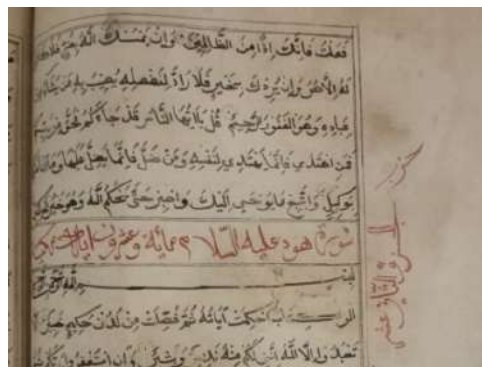 فعلت فانك اذا من الظالمين وان يمسسك الله بضر فلا كاشف
له الا هو وان يردك بخير فلا راد لفضله يصيب به من يشاء من
عباده وهو الغفور الرحيم قل يا ايها الناس قد جاءكم الحق من ربكم
فمن اهتدى فانما يهتدي لنفسه ومن ضل فانما يضل عليها وما انا عليكم
بوكيل واتبع ما يوحى اليك واصبر حتى يحكم الله وهو خير
سورة هود عليه السلام مائة وعشرون
بسم الله الرحمن الرحيم
الر كتاب احكمت آياته ثم فصلت من لدن حكيم خبير
تعبدوا الا الله انني لكم منه نذير وبشير وان استغفروا ربكم
حزب
الجزو الثاني عشر